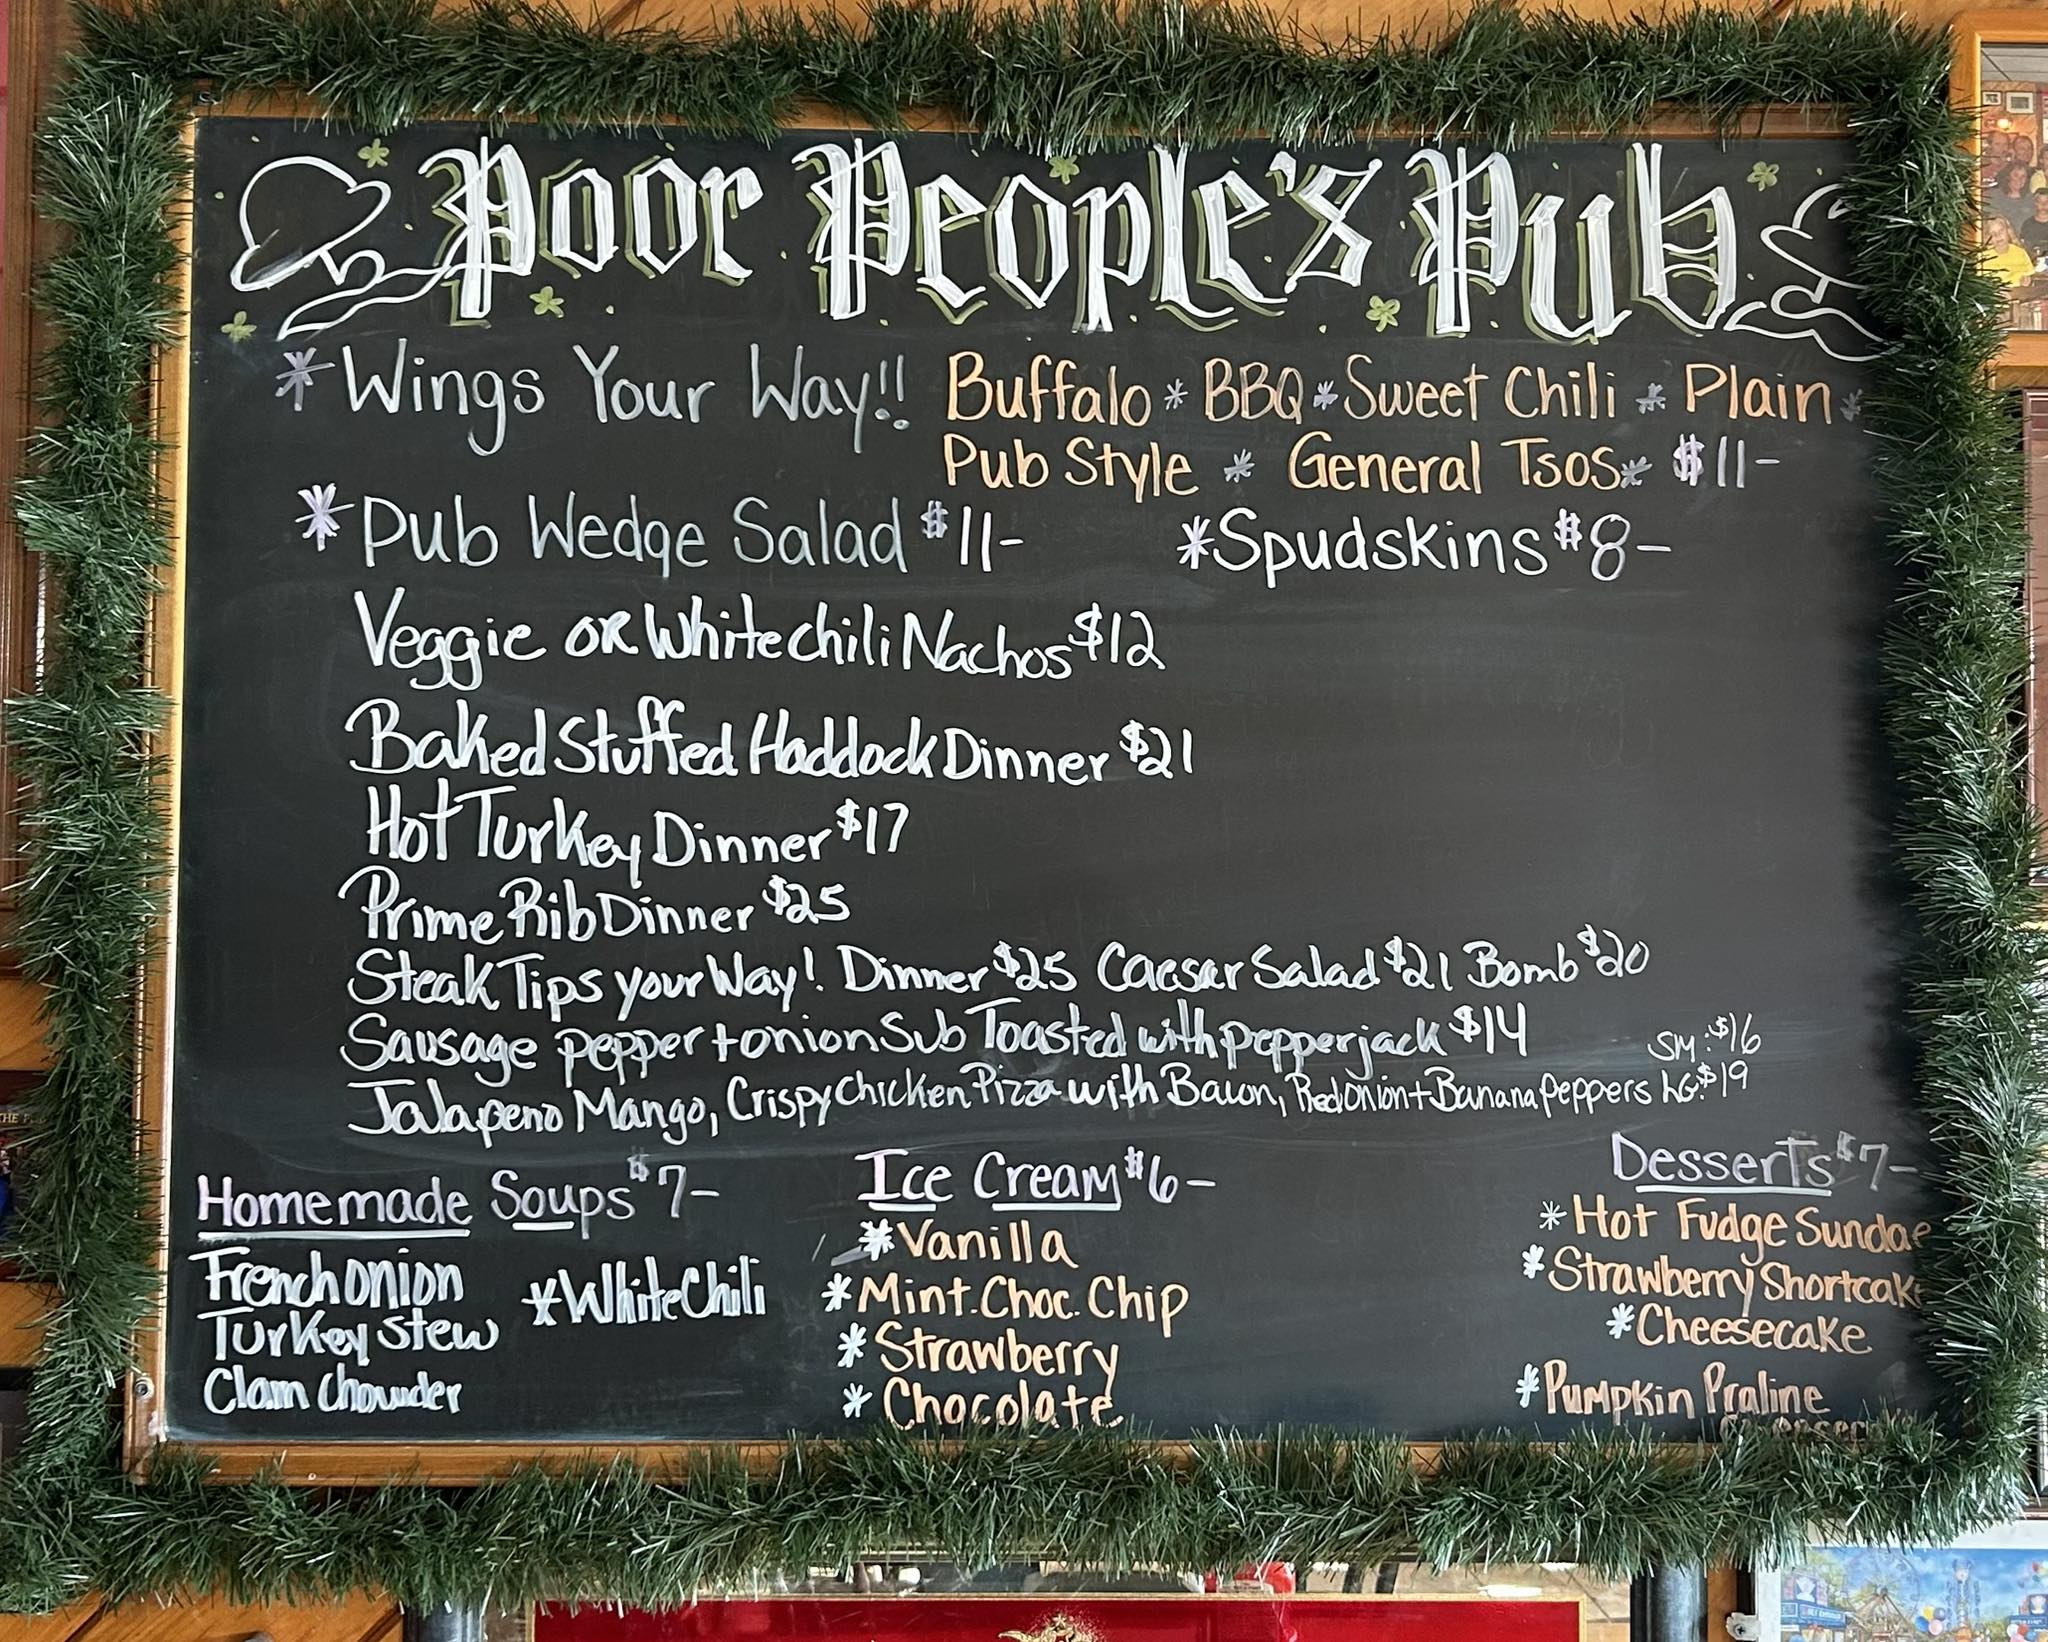 Poor People's Pub
*Wings Your Way!! Buffalo * BBQ * Sweet Chili * Plain *
Pub Style * General Tsos * $11-
*Pub Wedge Salad $11- *Spudskins $8-
Veggie OR White chili Nachos $12
Baked Stuffed Haddock Dinner $21
Hot Turkey Dinner $17
Prime Rib Dinner $25
Steak Tips your Way! Dinner $25 Caesar Salad $21 Bomb $20
Sausage pepper + onion Sub Toasted with pepperjack $14
SM: $16
Jalapeno Mango, Crispy chicken Pizza with Bacon, Red Onion + Banana peppers LG: $19
Homemade Soups $7-
French onion
Turkey stew
Clam Chowder
*White Chili
Ice Cream $6-
*Vanilla
*Mint. Choc. Chip
*Strawberry
*Chocolate
Desserts $7-
*Hot Fudge Sundae
*Strawberry Shortcake
*Cheesecake
*Pumpkin Praline
THE